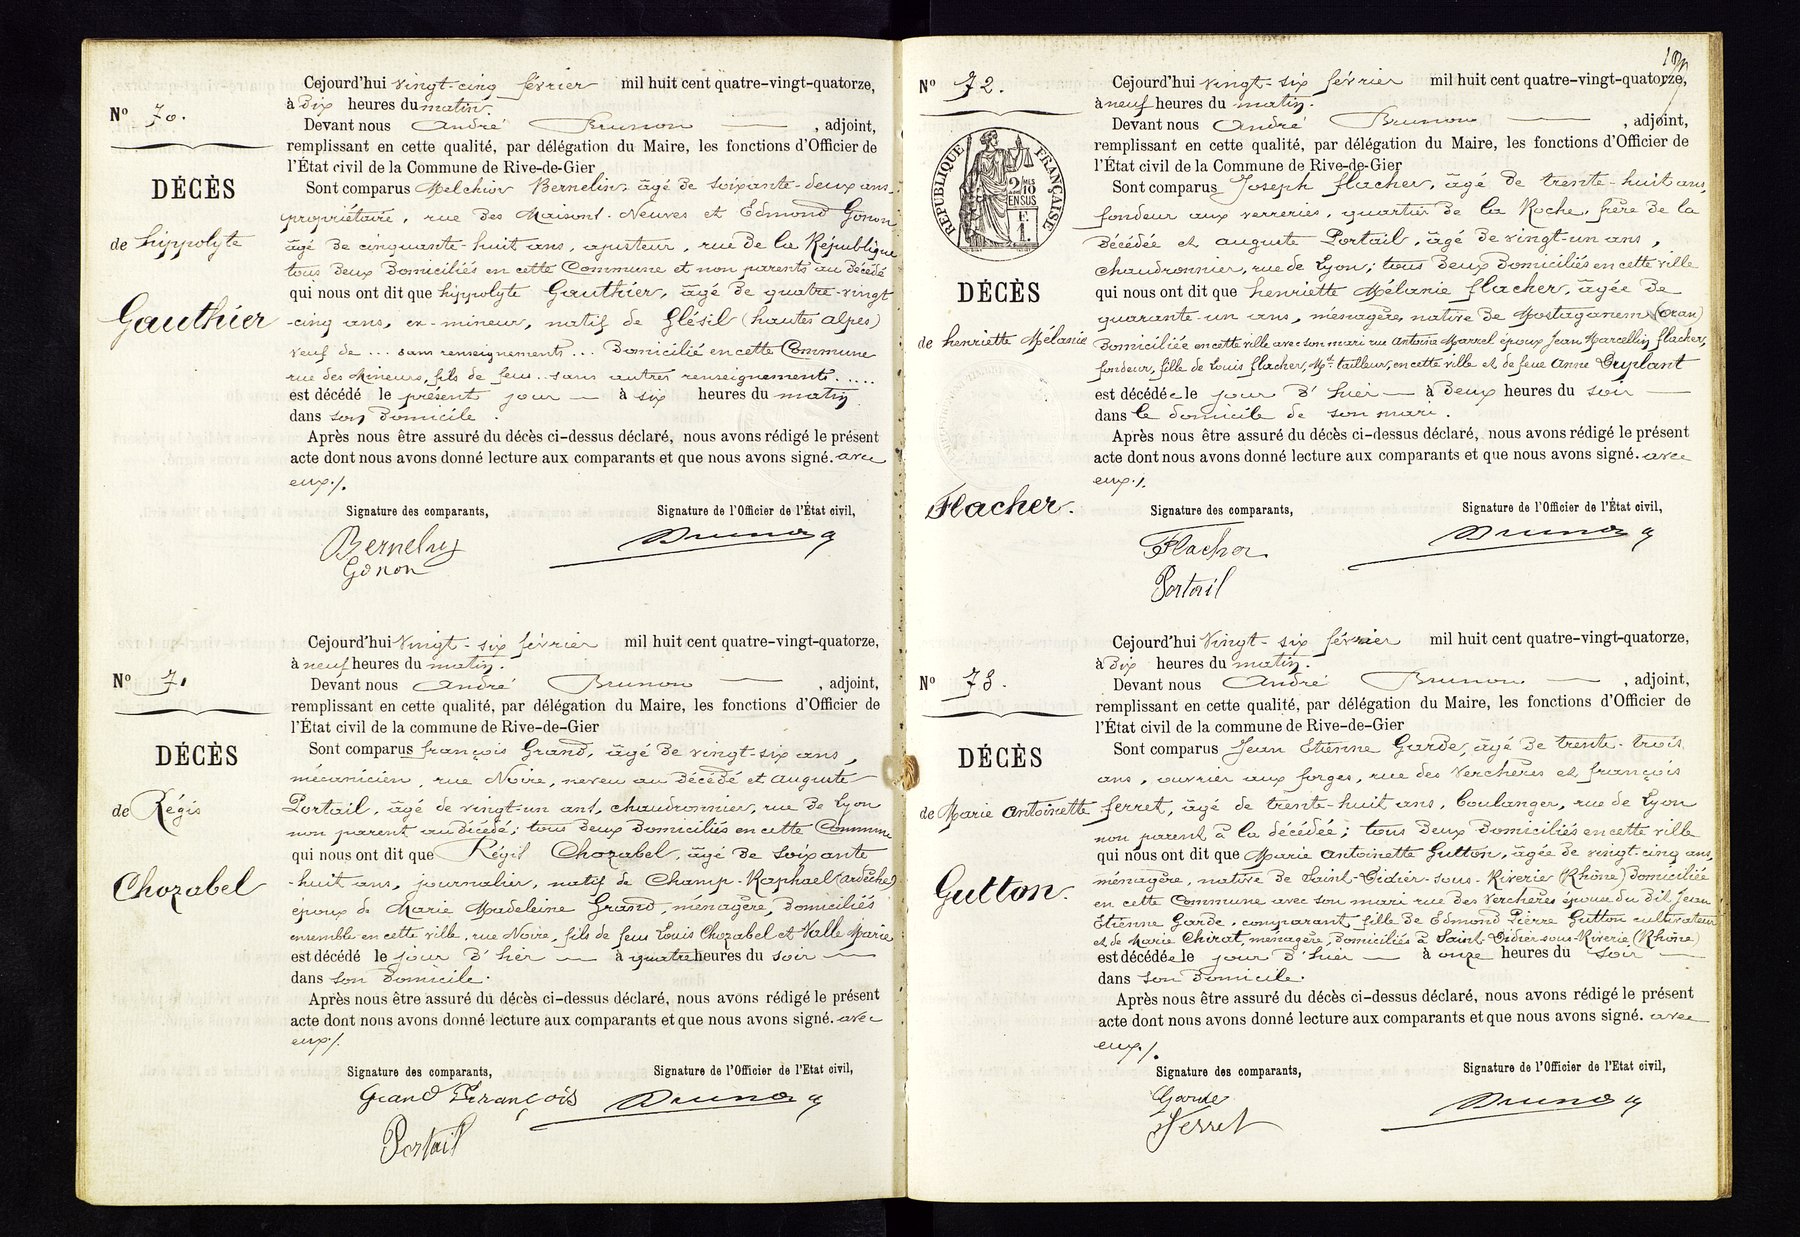 Nº 70.
DÉCÈS
de hippolyte
Gauthier
Cejourd'hui vingt-cinq février mil huit cent quatre-vingt-quatorze,
à dix heures du matin
Devant nous André Brunon , adjoint,
remplissant en cette qualité, par délégation du Maire, les fonctions d'Officier de
l'État civil de la Commune de Rive-de-Gier
Sont comparus Melchior Bernelin, âgé de soixante-deux ans
propriétaire, rue des Maisons-Neuves et Edmond Gonon
âgé de cinquante-huit ans, ajusteur, rue de la République
tous deux domiciliés en cette Commune et non parents au décédé
qui nous ont dit que hippolyte Gauthier, âgé de quatre-vingt
-cinq ans, ex-mineur, natif de Glésil (hautes alpes)
veuf de ... sans renseignements ... Domicilié en cette Commune
rue des Mineurs, fils de feus .. sans autres renseignements .....
est décédé le présent jour — à six heures du matin
dans son domicile.
Après nous être assuré du décès ci-dessus déclaré, nous avons rédigé le présent
acte dont nous avons donné lecture aux comparants et que nous avons signé. avec
eux ./.
Signature des comparants, Signature de l'Officier de l'État civil,
Bernelin Brunon
Gonon
Nº 71
DÉCÈS
de Régis
Chozabel
Cejourd'hui vingt-six février mil huit cent quatre-vingt-quatorze,
à neuf heures du matin.
Devant nous André Brunon — , adjoint,
remplissant en cette qualité, par délégation du Maire, les fonctions d'Officier de
l'État civil de la commune de Rive-de-Gier
Sont comparus françois Grand, âgé de vingt-six ans,
mécanicien, rue Noire, neveu au décédé et auguste
Portail, âgé de vingt-un ans, chaudronnier, rue de Lyon
non parent au décédé; tous deux domiciliés en cette Commune
qui nous ont dit que Régis Chozabel, âgé de soixante
-huit ans, journalier, natif de Champ-Raphael (ardèche)
époux de Marie Madeleine Grand, ménagère, domiciliés
ensemble en cette ville, rue Noire, fils de feus Louis Chozabel et Valle Marie
est décédé le jour d'hier — à quatre heures du soir —
dans son domicile.
Après nous être assuré du décès ci-dessus déclaré, nous avons rédigé le présent
acte dont nous avons donné lecture aux comparants et que nous avons signé. avec
eux ./.
Signature des comparants, Signature de l'Officier de l'Etat civil,
Grand François Brunon
Portail
Nº 72.
RÉPUBLIQUE FRANÇAISE
2/10 MES EN SUS
F.
1.
DÉCÈS
de henriette Mélanie
Flacher.
Cejourd'hui vingt-six février mil huit cent quatre-vingt-quatorze,
à neuf heures du matin.
Devant nous André Brunon — , adjoint,
remplissant en cette qualité, par délégation du Maire, les fonctions d'Officier de
l'État civil de la Commune de Rive-de-Gier
Sont comparus Joseph flacher, âgé de trente-huit ans,
fondeur aux verreries, quartier de la Roche, frère de la
décédée et auguste Portail, âgé de vingt-un ans,
chaudronnier, rue de Lyon; tous deux domiciliés en cette ville
qui nous ont dit que henriette Mélanie flacher, âgée de
quarante-un ans, ménagère, native de Mostaganem (Oran)
Domiciliée en cette ville avec son mari rue Antoine Marrel époux Jean Marcellin flacher,
fondeur, fille de Louis flacher, Md. tailleur, en cette ville et de feue Anne Dryplant
est décédée le jour d'hier — à deux heures du soir —
dans le domicile de son mari.
Après nous être assuré du décès ci-dessus déclaré, nous avons rédigé le présent
acte dont nous avons donné lecture aux comparants et que nous avons signé. avec
eux ./.
Signature des comparants, Signature de l'Officier de l'État civil,
Flacher Brunon
Portail
Nº 73.
DÉCÈS
de Marie Antoinette
Gutton.
Cejourd'hui vingt-six février mil huit cent quatre-vingt-quatorze,
à dix heures du matin.
Devant nous André Brunon — , adjoint,
remplissant en cette qualité, par délégation du Maire, les fonctions d'Officier de
l'État civil de la commune de Rive-de-Gier
Sont comparus Jean Etienne Garde, âgé de trente-trois
ans, ouvrier aux forges, rue des Verchères et françois
ferret, âgé de trente-huit ans, boulanger, rue de Lyon
non parent à la décédée; tous deux domiciliés en cette ville
qui nous ont dit que Marie Antoinette Gutton, âgée de vingt-cinq ans,
ménagère, native de Saint-Didier-sous-Riverie (Rhône) domiciliée
en cette Commune avec son mari rue des Verchères épouse du dit Jean
Etienne Garde, comparant, fille de Edmond Pierre Gutton cultivateur
et de Marie Chirat, ménagère, domiciliés à Saint Didier sous-Riverie (Rhône)
est décédée le jour d'hier — à onze heures du soir —
dans son domicile.
Après nous être assuré du décès ci-dessus déclaré, nous avons rédigé le présent
acte dont nous avons donné lecture aux comparants et que nous avons signé. avec
eux ./.
Signature des comparants, Signature de l'Officier de l'Etat civil,
Garde Brunon
Ferret